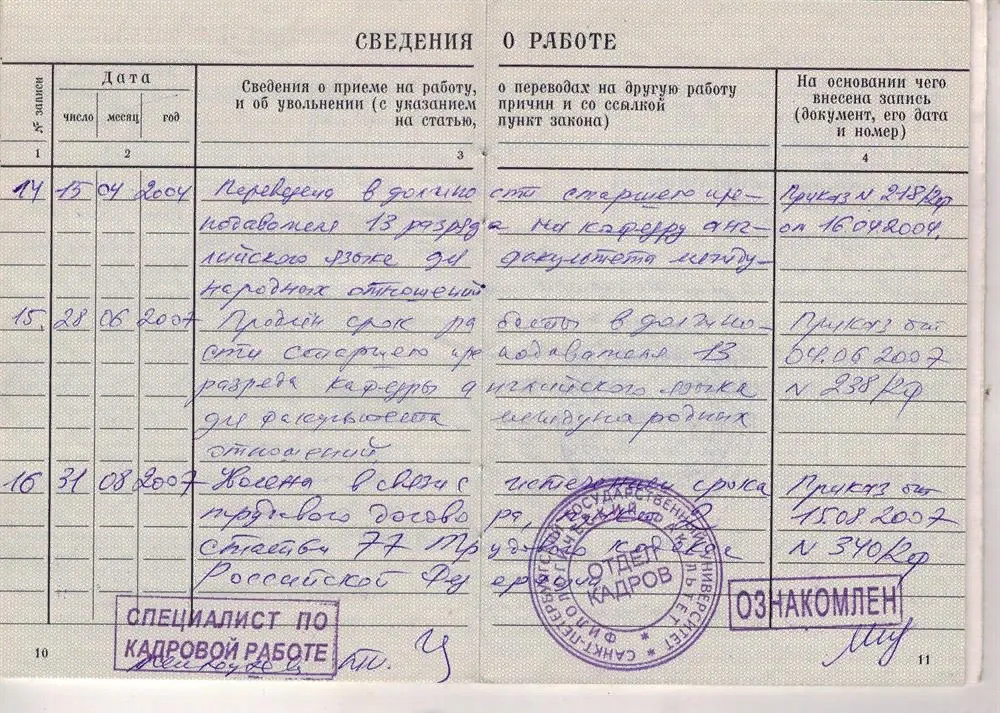 СВЕДЕНИЯ О РАБОТЕ
№ записи
Дата
число месяц год
Сведения о приеме на работу, о переводах на другую работу
и об увольнении (с указанием причин и со ссылкой
на статью, пункт закона)
На основании чего
внесена запись
(документ, его дата
и номер)
1 2 3 4
14 15 04 2004 Переведена в должности старшего пре- Приказ N 218/Кф
подавателя 13 разряда на кафедру анг- от 16.04.2004.
лийского языка для факультета между-
народных отношений
15. 28 06 2007 Продлён срок работы в должно- Приказ от
сти старшего преподавателя 13 04.06.2007
разряда кафедры английского языка N 238/Кф
для факультета международных
отношений
16 31 08 2007 Уволена в связи с истечением срока Приказ от
трудового договора, 15.08.2007
статьи 77 Трудового кодекса N 340/Кф
Российской Федерации
СПЕЦИАЛИСТ ПО
КАДРОВОЙ РАБОТЕ
САНКТ-ПЕТЕРБУРГСКИЙ ГОСУДАРСТВЕННЫЙ УНИВЕРСИТЕТ
ФИЛОЛОГИЧЕСКИЙ ФАКУЛЬТЕТ
ОТДЕЛ
КАДРОВ
ОЗНАКОМЛЕН
10 11